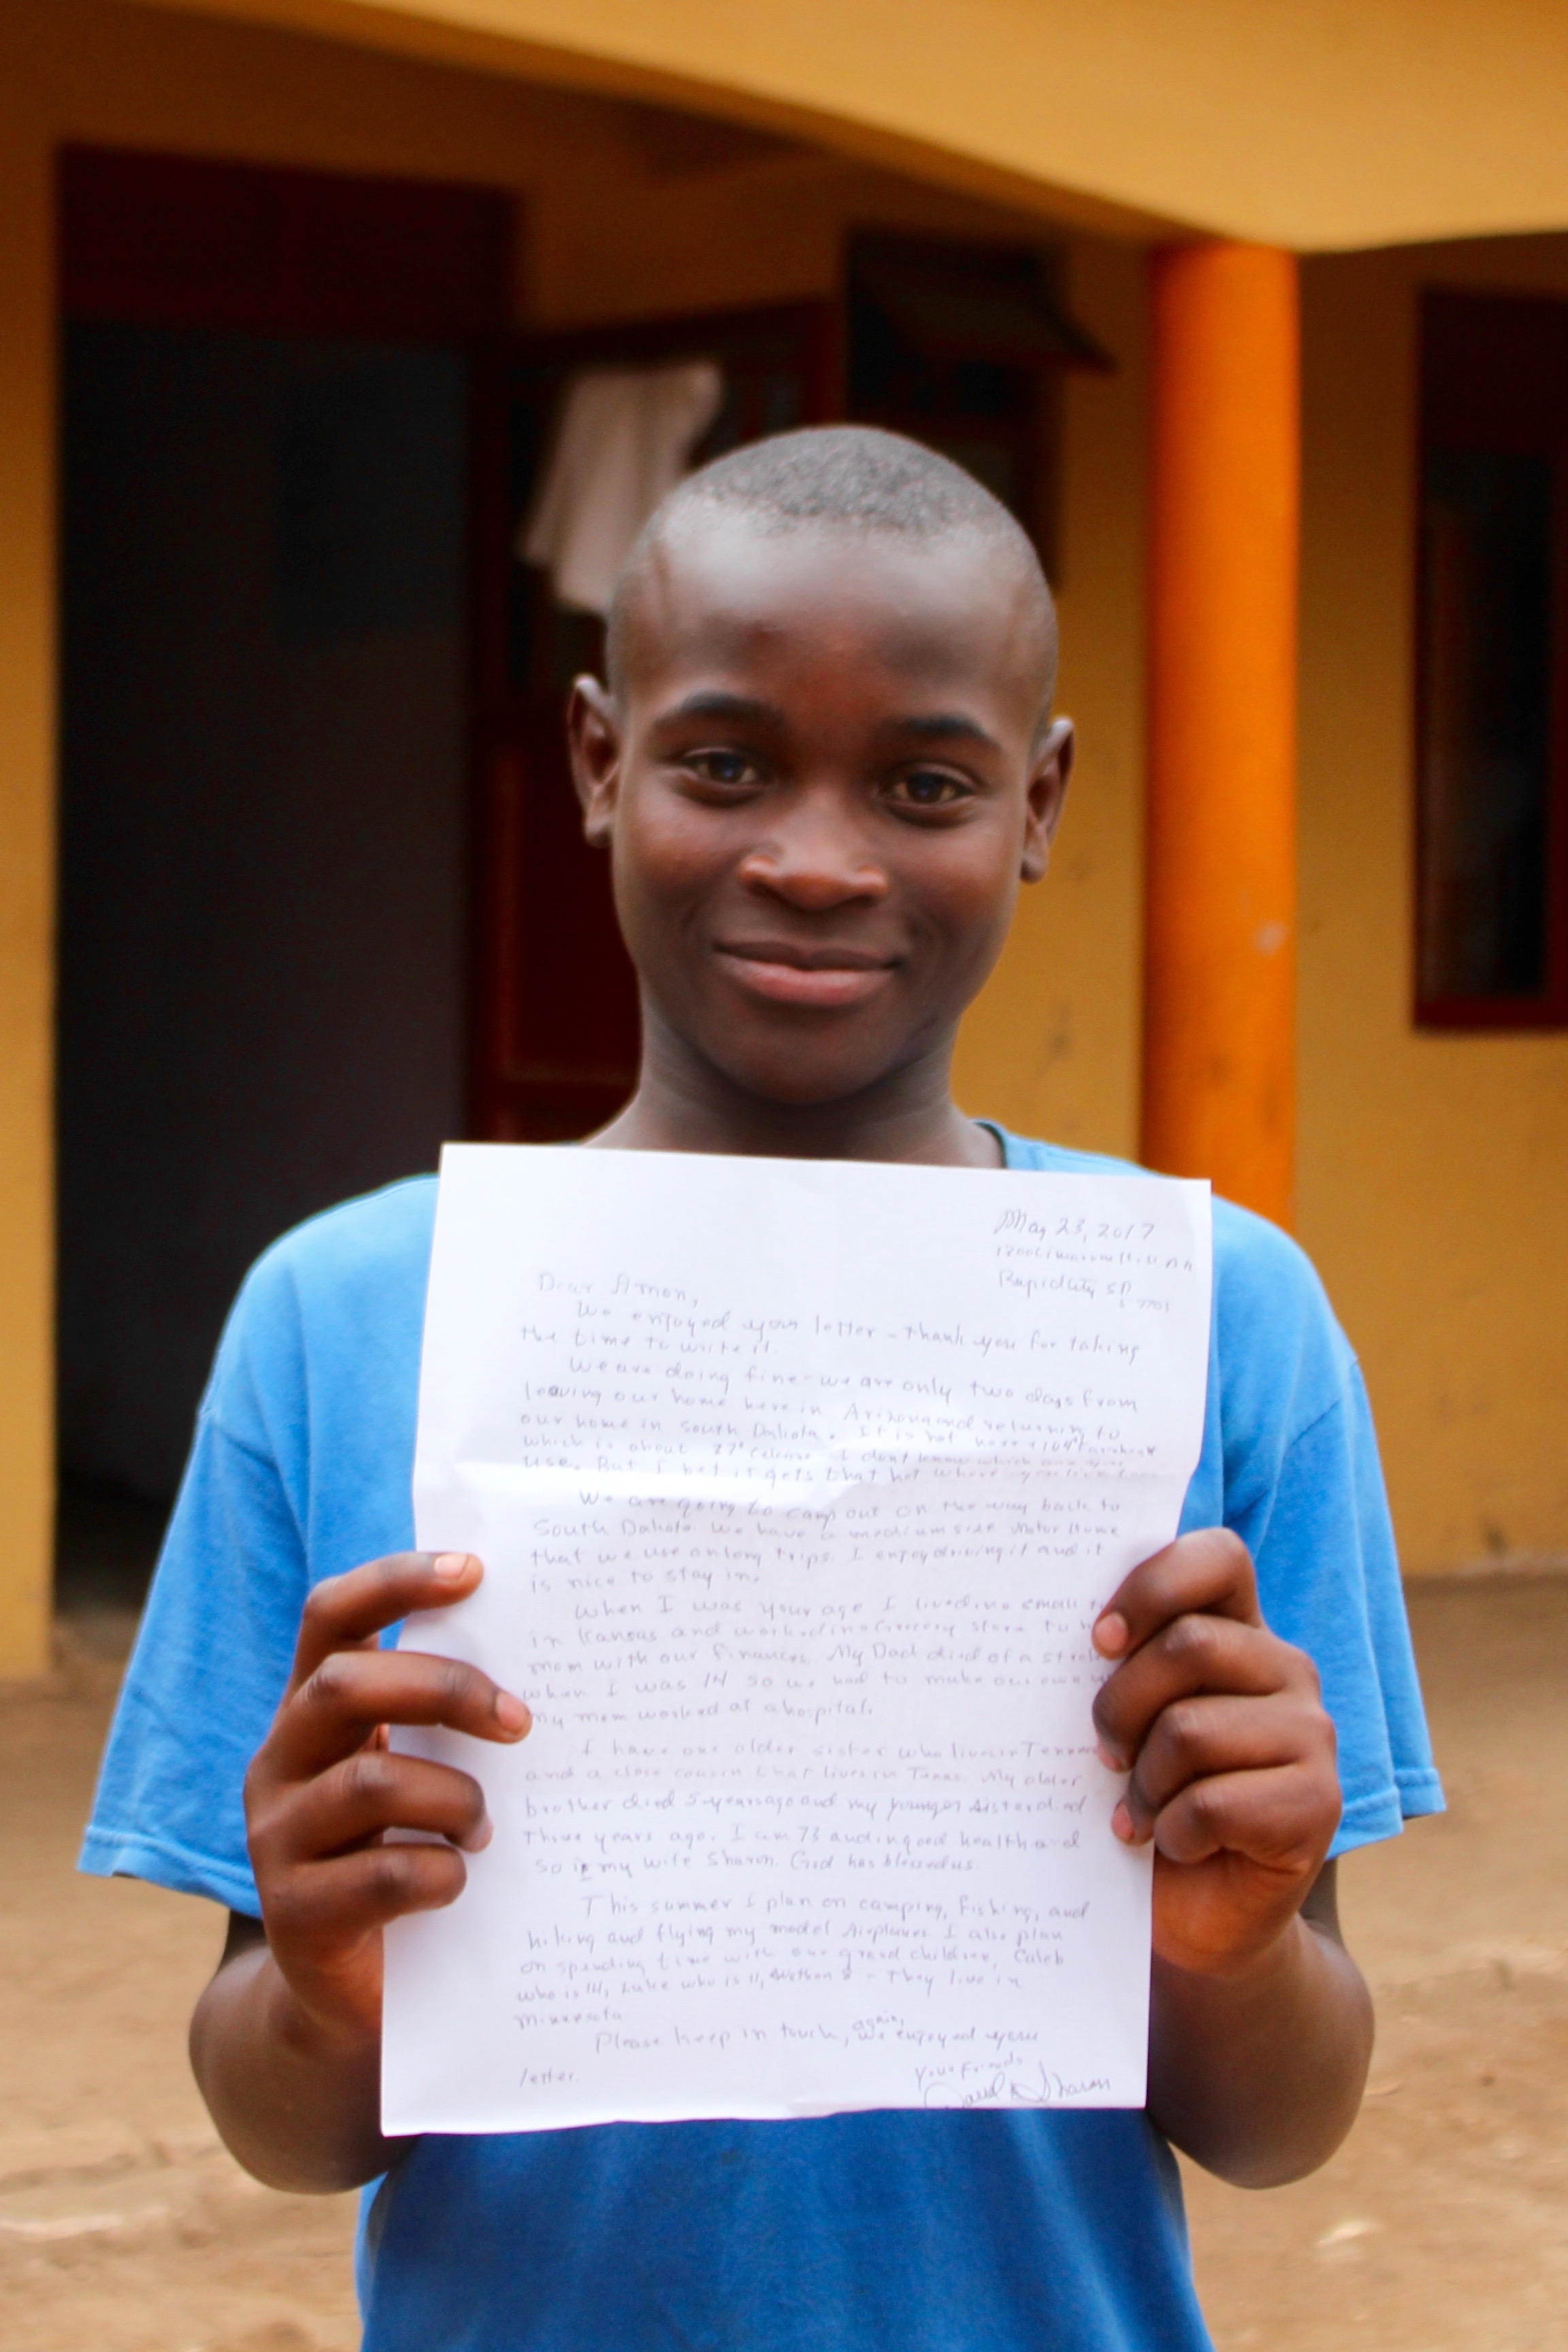 May 23, 2017
Rapid City SD
57701
Dear Amon,
We enjoyed your letter - thank you for taking
the time to write it.
We are doing fine - we are only two days from
leaving our home here in Arizona and returnin to
our home in South Dakota. It is hot here
which is about I don't know which one you
use. But I bet it gets that hot where you live
We are going to camp out on the way back to
South Dakota. We have a medium size Motor Home
that we use on long trips. I enjoy driving it and it
is nice to stay in.
When I was your age I lived in small
in Kansas and worked in Grocery store to
mom with our finances. My Dad died of a
when I was 14 so we had to make our own
my mom worked at a hospital.
I have one older sister who lives in
and a close cousin that lives in Texas. My older
brother died 5 years ago and my younger sister died
three years ago. I am 73 and in good health and
so is my wife Sharon. God has blessed us.
This summer I plan on camping, fishing, and
hiking and flying my model Airplanes. I also plan
on spending time with our grand children, Caleb
who is 14, Luke who is 11, 8 - They live in
Minnesota.
Please keep in touch, again, we enjoyed your
letter.
Your Friends
& Sharon